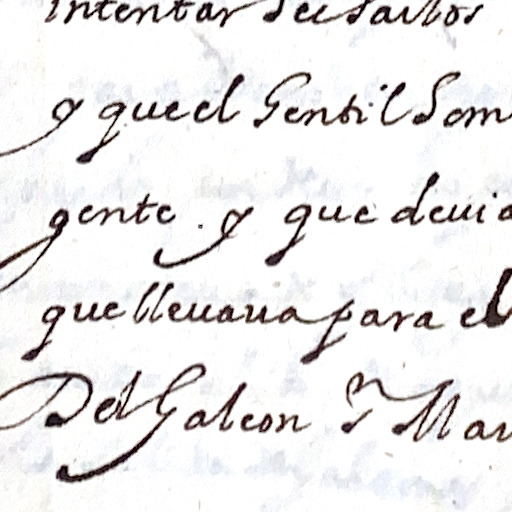 intentar
y que el Gentil hom
gente. y que deuia
que lleuaua para el
Del Galeon Sn Mar